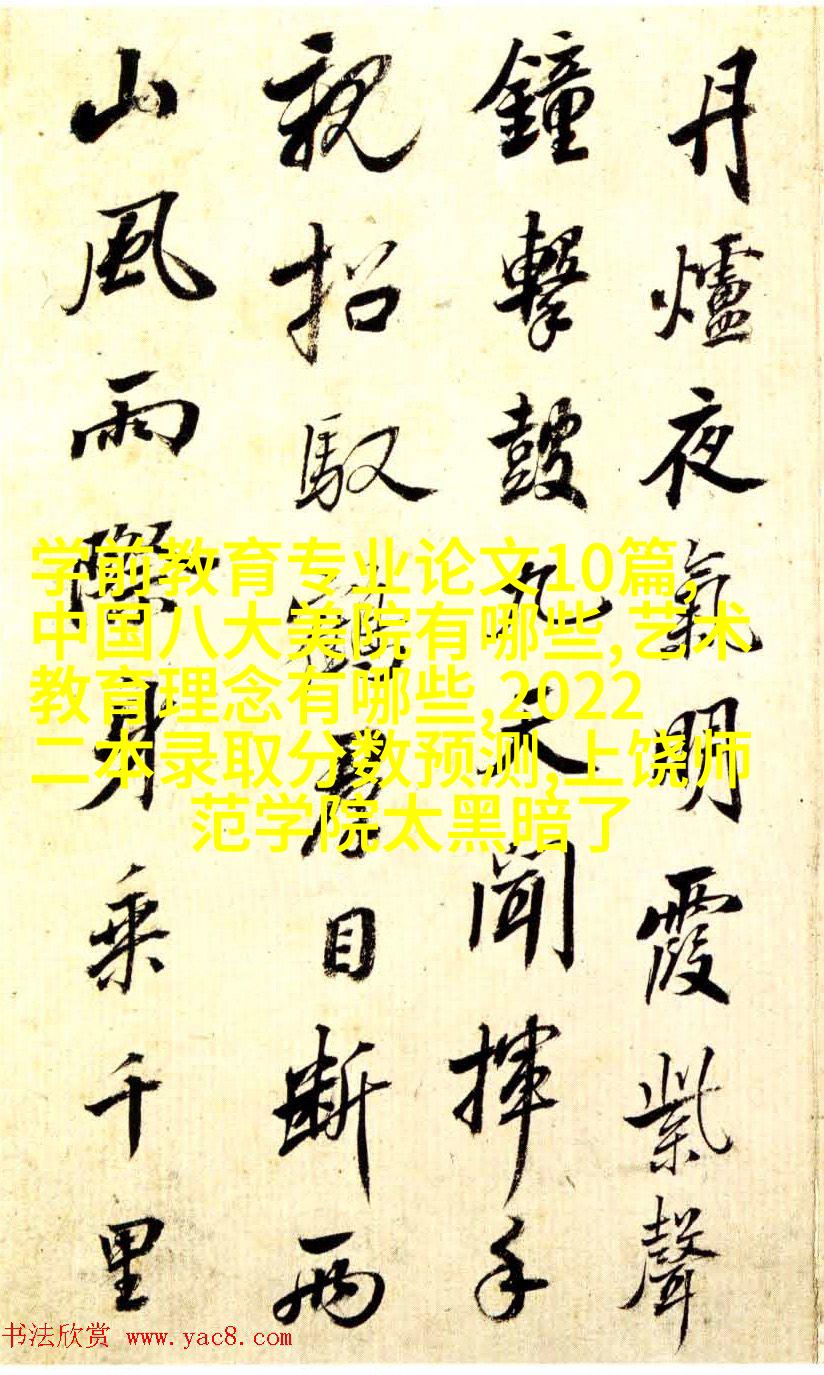 丹爐夜氣明霞紫聲
鐘擊鼓九天聞揮手
親招馭鶴君目斷兩
山風雨際身乘千里
学前教育专业论文10篇,
中国八大美院有哪些,艺术
教育理念有哪些,2022
二本录取分数预测,上饶师
范学院太黑暗了
书法欣赏 www.yac8.com